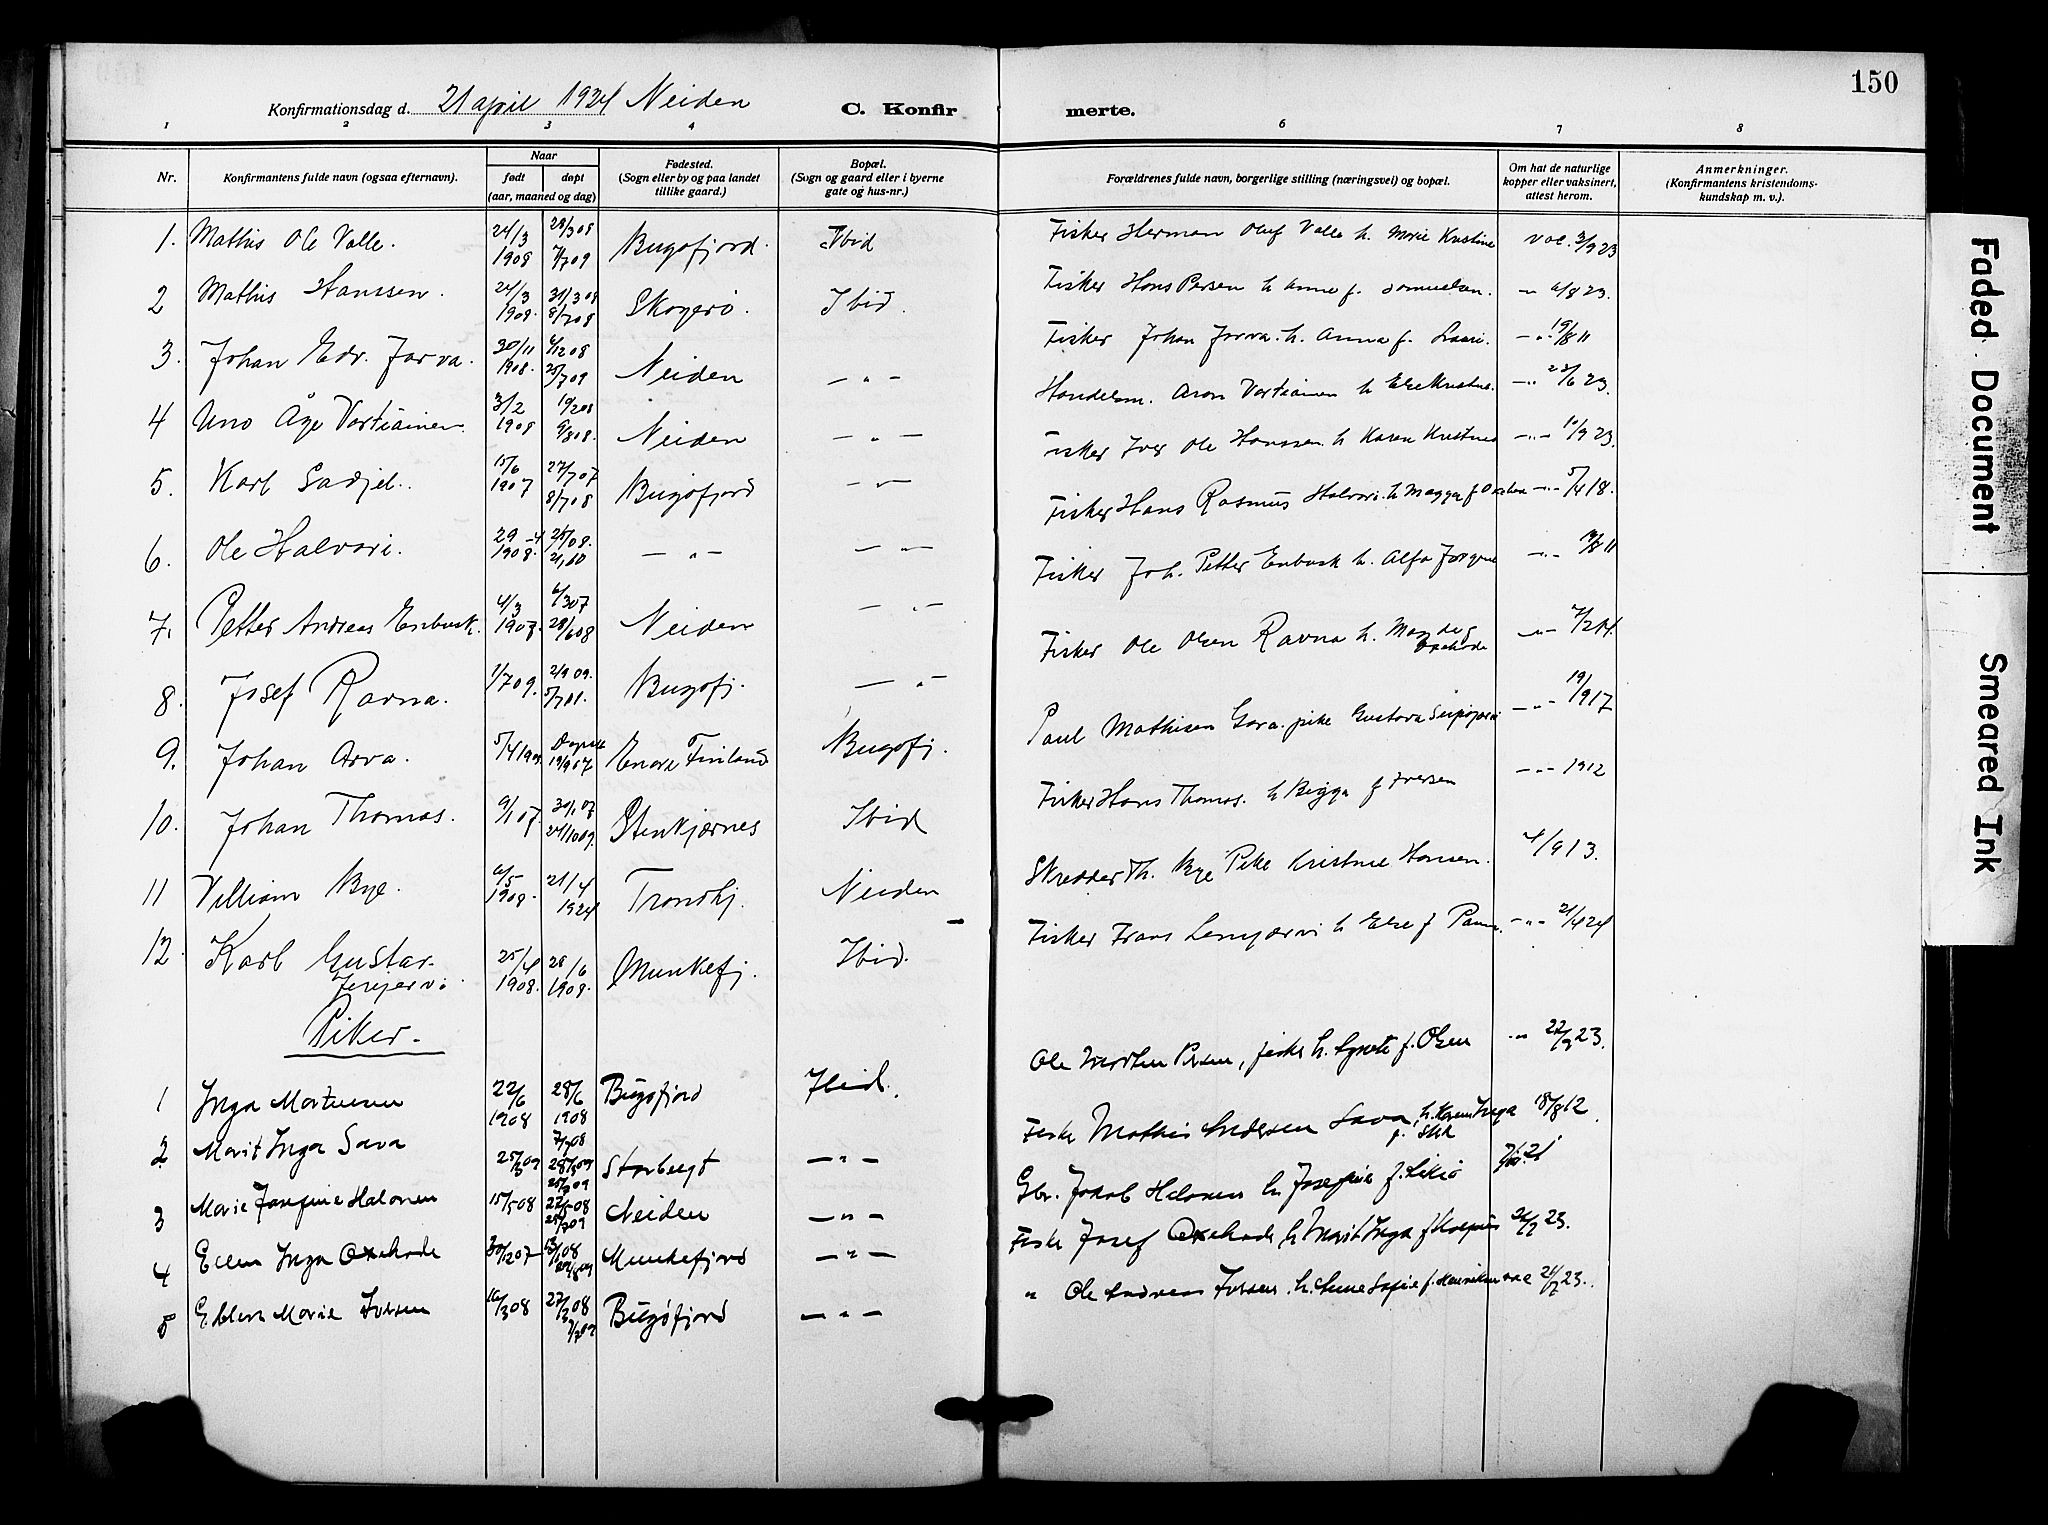 150
Konfirmationsdag d. 21 april 1924 Neiden C. Konfir merte.
1 2 3 4 6 7 8
Nr. Konfirmantens fulde navn (ogsaa efternavn). Naar født døpt (aar, maaned og dag) Fødested. (Sogn eller by og paa landet tillike gaard.) Bopæl. (Sogn og gaard eller i byerne gate og hus-nr.) Forældrenes fulde navn, borgerlige stilling (næringsvei) og bopæl. Om hat de naturlige kopper eller vaksinert, attest herom. Anmerkninger. (Konfirmantens kristendoms-kundskap m. v.).
1. Mathis Ole Valle. 24/3 1908 29/3 08 7/7 09 Bugøfjord. Ibid Fisker Herman Oluf Valle h. Marie Kristine vac. 3/9 23
2 Mathis Hanssen. 24/3 1908. 31/3 08 8/7 08 Skogerø. Ibid. Fisker Hans Persen h. Anne f. Samuelsen. -"- 6/8 23.
3. Johan Edv. Jarva. 30/11 1908. 4/12 08 25/7 09 Neiden -"- Fisker Johan Jarva. h. Anna f. -"- 19/8 11
4 Uno Åge Vartiainen. 3/2 1908 19/2 08 9/8 08. Neiden -"- Handelsm. Aron Vartiainen h. -"- 23/6 23.
5. Karl Sadjel. 15/6 1907 27/7 07 8/7 08 Bugøfjord -"- Fisker Iver Ole Hanssen h. Karen Kristine -"- 10/9 23.
6. Ole Halvari. 29-4 1908. -"- -"- Fisker Hans Rasmus Halvari h. Magga f. -"- 5/4 18.
7. Petter Andreas Enbusk. 4/3 1907. 6/3 07 28/6 08 Neiden -"- Fisker Joh. Petter Enbusk h. Alfa -"- 19/8 11
8. Josef Ravna. 1/7 09. 2/9 09. Bugøfj. -"- Fisker Ole Olsen Ravna h. -"- 7/2 24.
9. Johan Arva. Enare Finland Bugøfj. Paul Mathisen pike Gustava -"- 19/9 17
10. Johan Thomas. 9/1 07. 30/1 07 24/10 09. Stenkjærnes Ibid Fisker Hans Thomas. h. Bigga f. Iversen -"- 1912
11 William Bye. 6/5 1908. 21/4 1924 Trondhj. Neiden Skredder Th. Bye Pike Kristine Hansen. 4/9 13.
12. Karl Gustav 25/4 1908. 28/6 1908. Munkefj. Ibid. Fisker Frans h. Else f. -"- 21/4 24
Piker.
1 Inga Martinsen 22/6 1908 28/6 1908 Bugøfjord Ibid. Ole Morten Persen, fisker h. f. Olsen -"- 22/9 23.
2 Marit Inga Sava 25/3 09 28/3 09 Storbugt -"- Fisker Mathis Andersen Sava, h. Karen Inga 18/8 12.
3 Marie Josefine Halonen 15/5 08 22/5 08 Neiden -"- Gbr. Jakob Halonen h. Josefine f.
4 Ellen Inga Oxehode 30/12 07 13/1 08 Munkefjord -"- Fisker Josef Oxehode h. Marit Inga f.
5 Ellen Marie Iversen 16/3 08 27/3 08 Bugøfjord -"- " Ole Andreas Iversen. h. Anne Sofie f. Henriksen
Faded Document
Smeared Ink